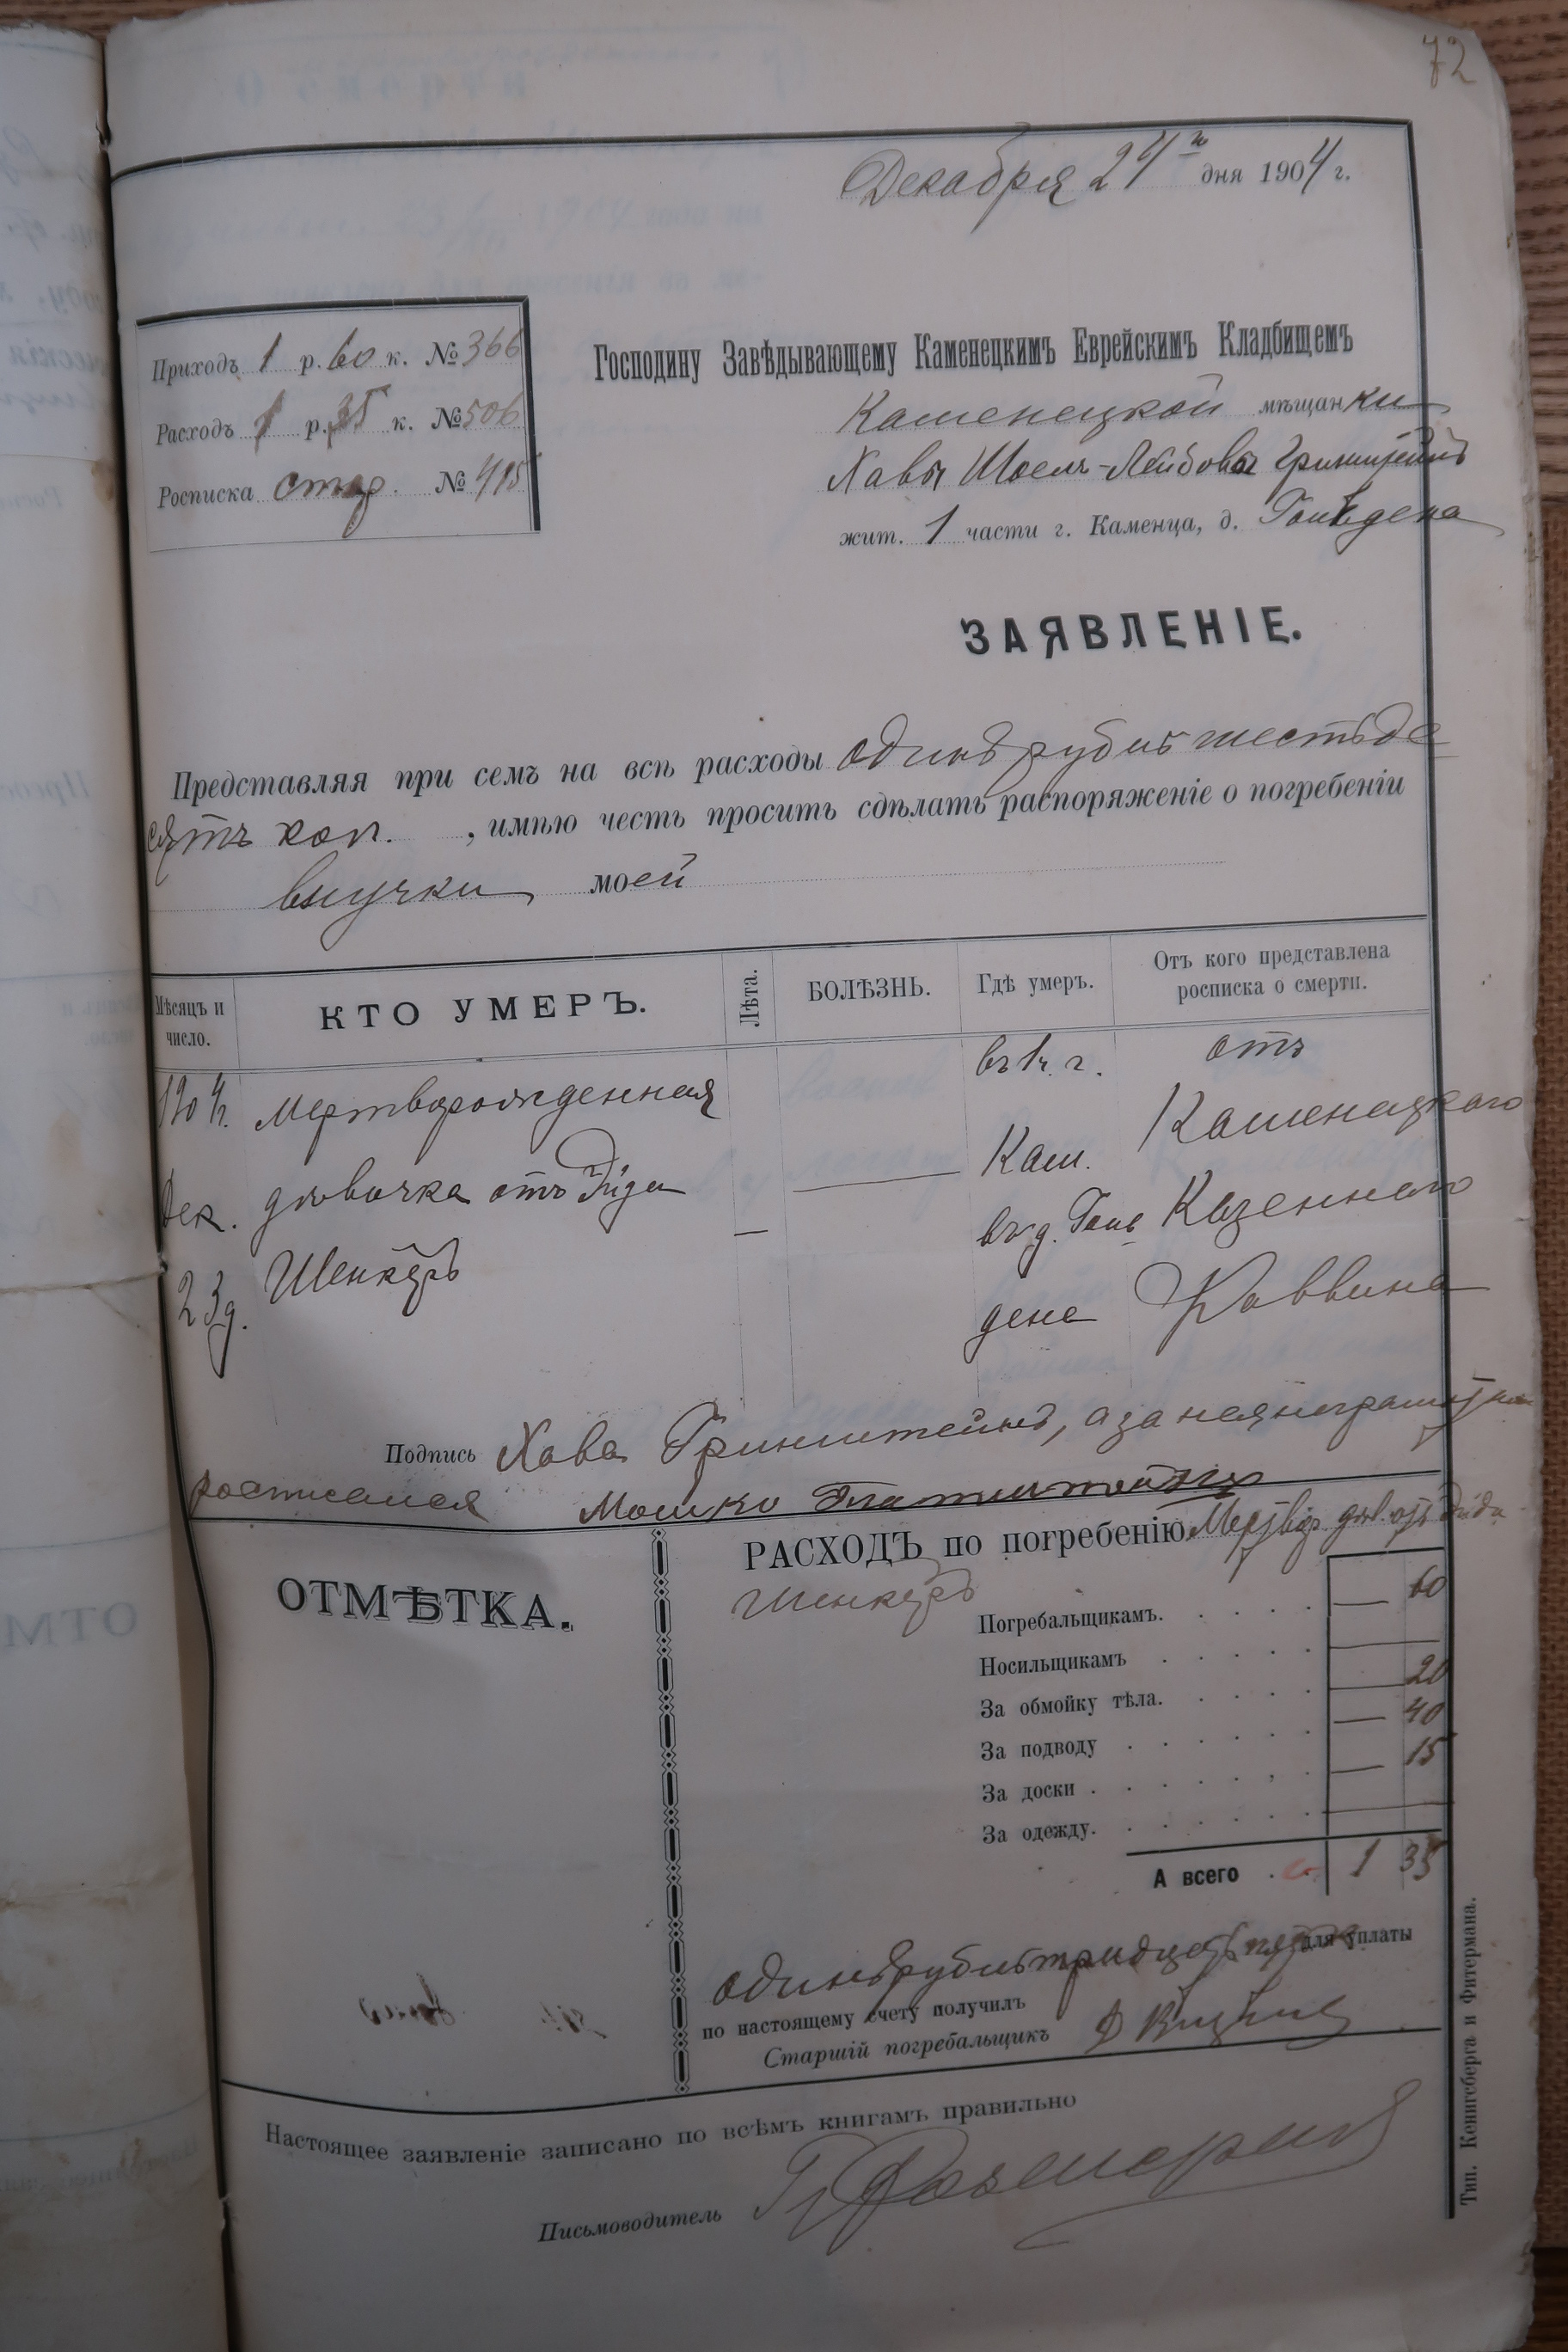 72
Декабря 24го дня 1904 г.
Приходъ 1 р. 60 к. № 366
Расходъ 1 р. 35 к. № 506
Росписка стар. № 415
Господину Завѣдывающему Каменецкимъ Еврейскимъ Кладбищемъ
Каменецкой мѣщанки
Хавы Шоель-Лейбовы Гринштейнъ
жит. 1 части г. Каменца, д.
ЗАЯВЛЕНІЕ.
Представляя при семъ на всѣ расходы одинъ рубль шестьде
сятъ коп. , имѣю честь просить сдѣлать распоряженіе о погребеніи
внучки моей
Мѣсяцъ и число. КТО УМЕРЪ. Лѣта. БОЛѢЗНЬ. Гдѣ умеръ. Отъ кого представлена росписка о смерти.
1904г. мертворожденная въ 1ч. г. отъ Каменецкаго
Дек. дѣвочка отъ Эйди — — Кам. въ д. Казеннаго
23д. Шенкеръ дена Раввина
Подпись Хава Гринштейнъ, а за нея неграмотную
росписался Мошко
ОТМѢТКА.
РАСХОДЪ по погребенію Мертвор. дѣв. отъ Эйди
Шенкеръ
Погребальщикамъ. — 60
Носильщикамъ
За обмойку тѣла. 20
За подводу — 40
За доски — 15
За одежду.
А всего 1 35
одинъ рубль тридцать пять к. для уплаты
по настоящему счету получилъ
Старшій погребальщикъ
Настоящее заявленіе записано по всѣмъ книгамъ правильно
Письмоводитель
Тип. Кенигсберга и Фитермана.